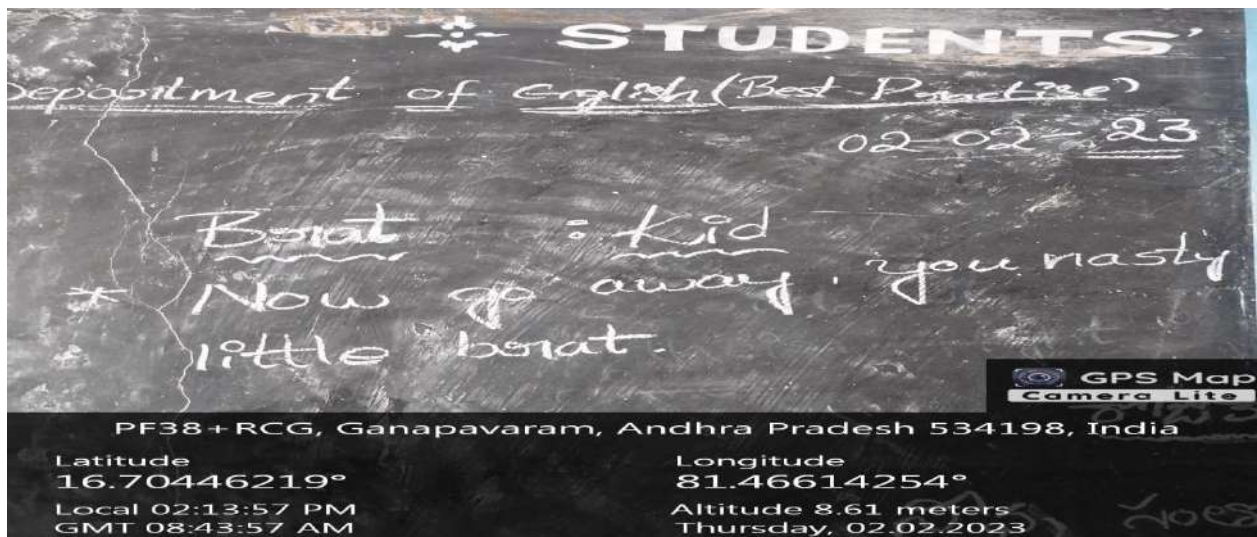 STUDENTS'
Department of English (Best Practise)
02-02-23
Brat : Kid
* Now go away, you nasty
little brat.
GPS Map
Camera Lite
PF38+RCG, Ganapavaram, Andhra Pradesh 534198, India
Latitude Longitude
16.70446219° 81.46614254°
Local 02:13:57 PM Altitude 8.61 meters
GMT 08:43:57 AM Thursday, 02.02.2023